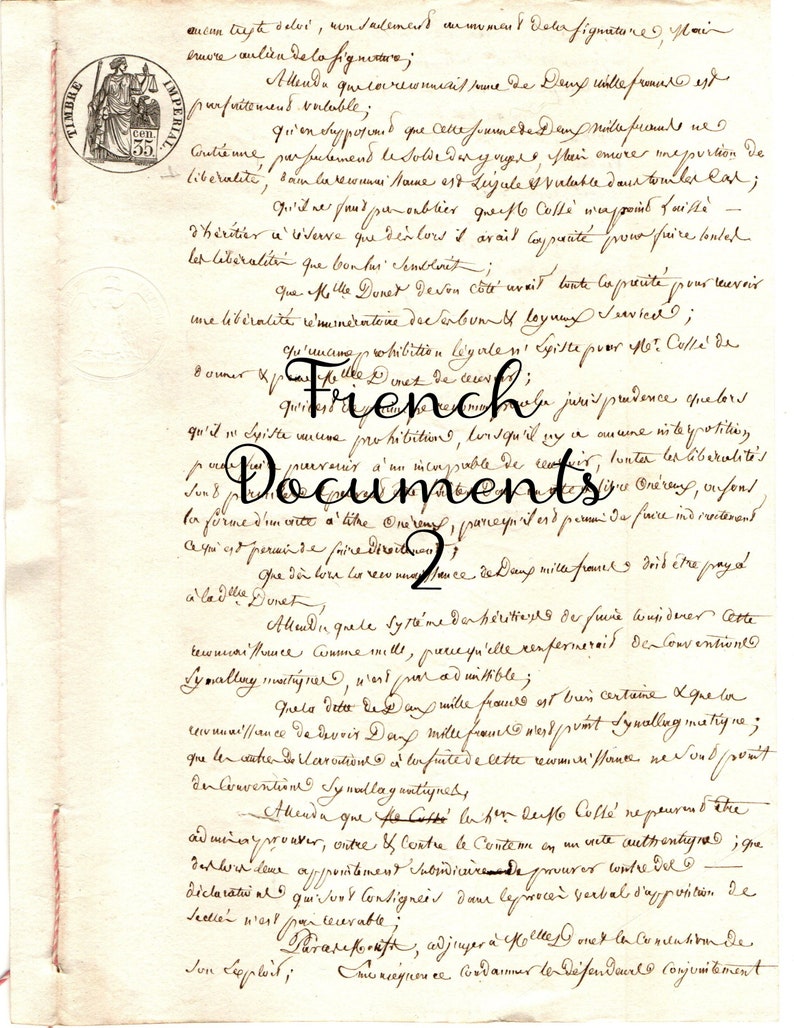 aucun texte de loi, non seulement au moment de la signature, Mais
encore au lieu de la signature;
TIMBRE IMPERIAL.
cen. 35
Attendu que la reconnaissance de Deux mille francs est
parfaitement valable;
qu'en supposant que cette somme de Deux mille francs ne
Contienne pas seulement le solde des gages Mais encore une portion de
libéralité, la reconnaissance est légale & valable dans tous les Cas;
qu'il ne faut pas oublier que M Collé n'a point laissé
d'héritier à réserve que dès lors il avait capacité pour faire toutes
les libéralités que bon lui semblait;
que Mlle Donet de son côté avait toute capacité pour recevoir
une libéralité rémunératoire de ses bons & loyaux services;
qu'aucune prohibition légale n'existe pour Mr. Collé de
donner & pour Mlle Donet de recevoir;
French
jurisprudence que lors
qu'il n'existe aucune prohibition, lorsqu'il n'y a aucune interposition
pour faire parvenir à un incapable de recevoir, toutes les libéralités
Documents
sont titre Onéreux, ou sous
la forme d'un acte à titre Onéreux, parce qu'il est permis de faire indirectement
ce qui est permis de faire Directement;
2
que dès lors la reconnaissance de Deux mille francs doit être payé
à la dlle Donet,
Attendu que le système des héritiers de faire considérer cette
reconnaissance comme nulle, parce qu'elle renfermerait des Conventions
Synallagmatiques, n'est pas admissible;
que la dette de Deux mille francs est bien certaine & que la
reconnaissance de devoir Deux mille francs n'est point Synallagmatique;
que les autres déclarations à la suite de cette reconnaissance ne sont point
des Conventions Synallagmatiques,
Attendu que les hers de M Collé ne peuvent être
admis à prouver, outre & Contre le Contenu en un acte authentique; que
dès lors leur appointement subsidiaire de prouver contre des
déclarations qui sont Consignées dans le procès verbal d'apposition de
scellés n'est pas recevable;
Par ces Motifs, adjuger à Mlle Donet les Conclusions de
son Exploit; En conséquence condamner les défendeurs conjointement